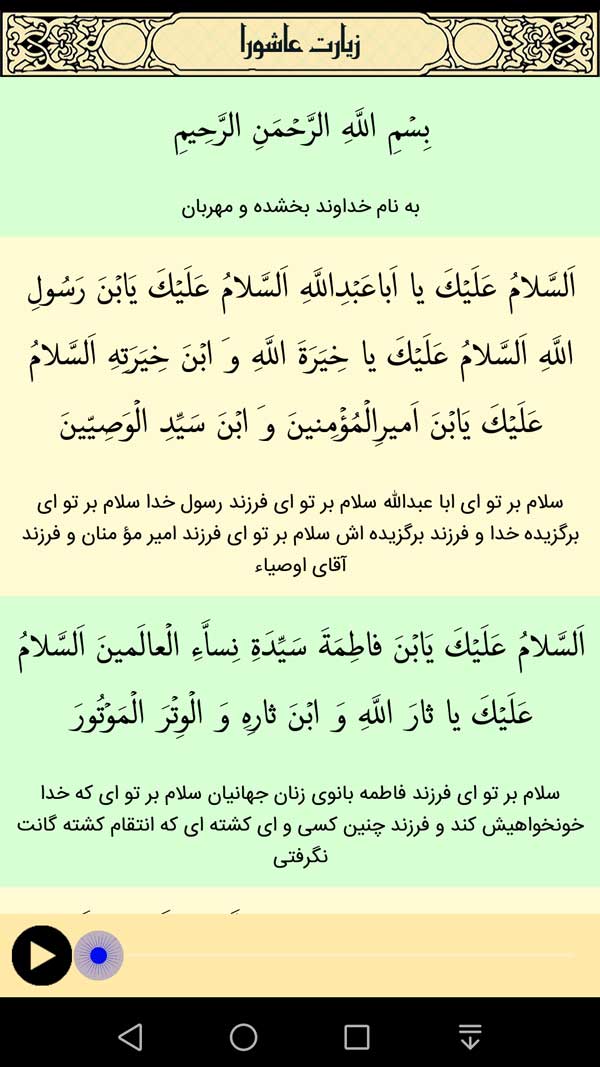 زیارت عاشورا
بِسْمِ اللَّهِ الرَّحْمَنِ الرَّحِیمِ
به نام خداوند بخشده و مهربان
اَلسَّلامُ عَلَیْكَ یا اَباعَبْدِاللَّهِ اَلسَّلامُ عَلَیْكَ یَابْنَ رَسُولِ
اللَّهِ اَلسَّلامُ عَلَیْكَ یا خِیَرَةَ اللَّهِ و َابْنَ خِیَرَتِهِ اَلسَّلامُ
عَلَیْكَ یَابْنَ اَمیرِالْمُؤْمِنینَ و َابْنَ سَیِّدِ الْوَصِیّینَ
سلام بر تو ای ابا عبدالله سلام بر تو ای فرزند رسول خدا سلام بر تو ای
برگزیده خدا و فرزند برگزیده اش سلام بر تو ای فرزند امیر مؤ منان و فرزند
آقای اوصیاء
اَلسَّلامُ عَلَیْكَ یَابْنَ فاطِمَةَ سَیِّدَةِ نِساَّءِ الْعالَمینَ اَلسَّلامُ
عَلَیْكَ یا ثارَ اللَّهِ وَ ابْنَ ثارِهِ وَ الْوِتْرَ الْمَوْتُورَ
سلام بر تو ای فرزند فاطمه بانوی زنان جهانیان سلام بر تو ای که خدا
خونخواهیش کند و فرزند چنین کسی و ای کشته ای که انتقام کشته گانت
نگرفتی